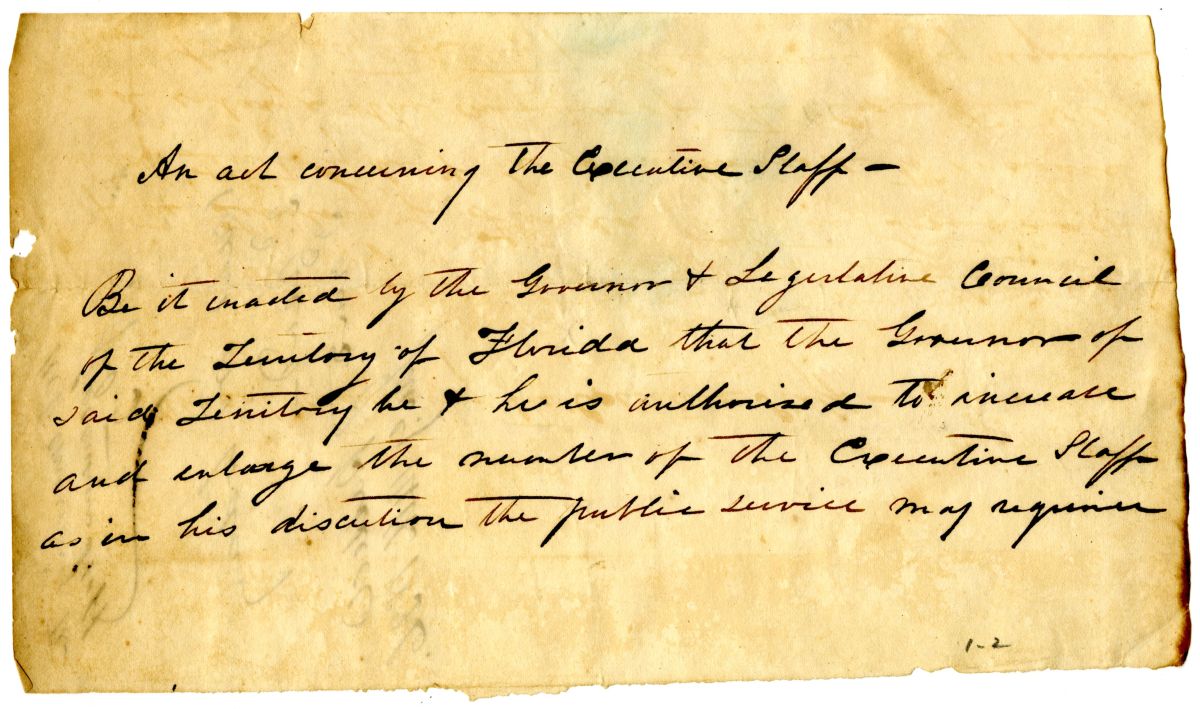 An act concerning the Executive Staff —
Be it enacted by the Governor & Legislative Council
of the Territory of Florida that the Governor of
said Territory be & he is authorised to increase
and enlarge the number of the Executive Staff
as in his discretion the public service may require
1-2